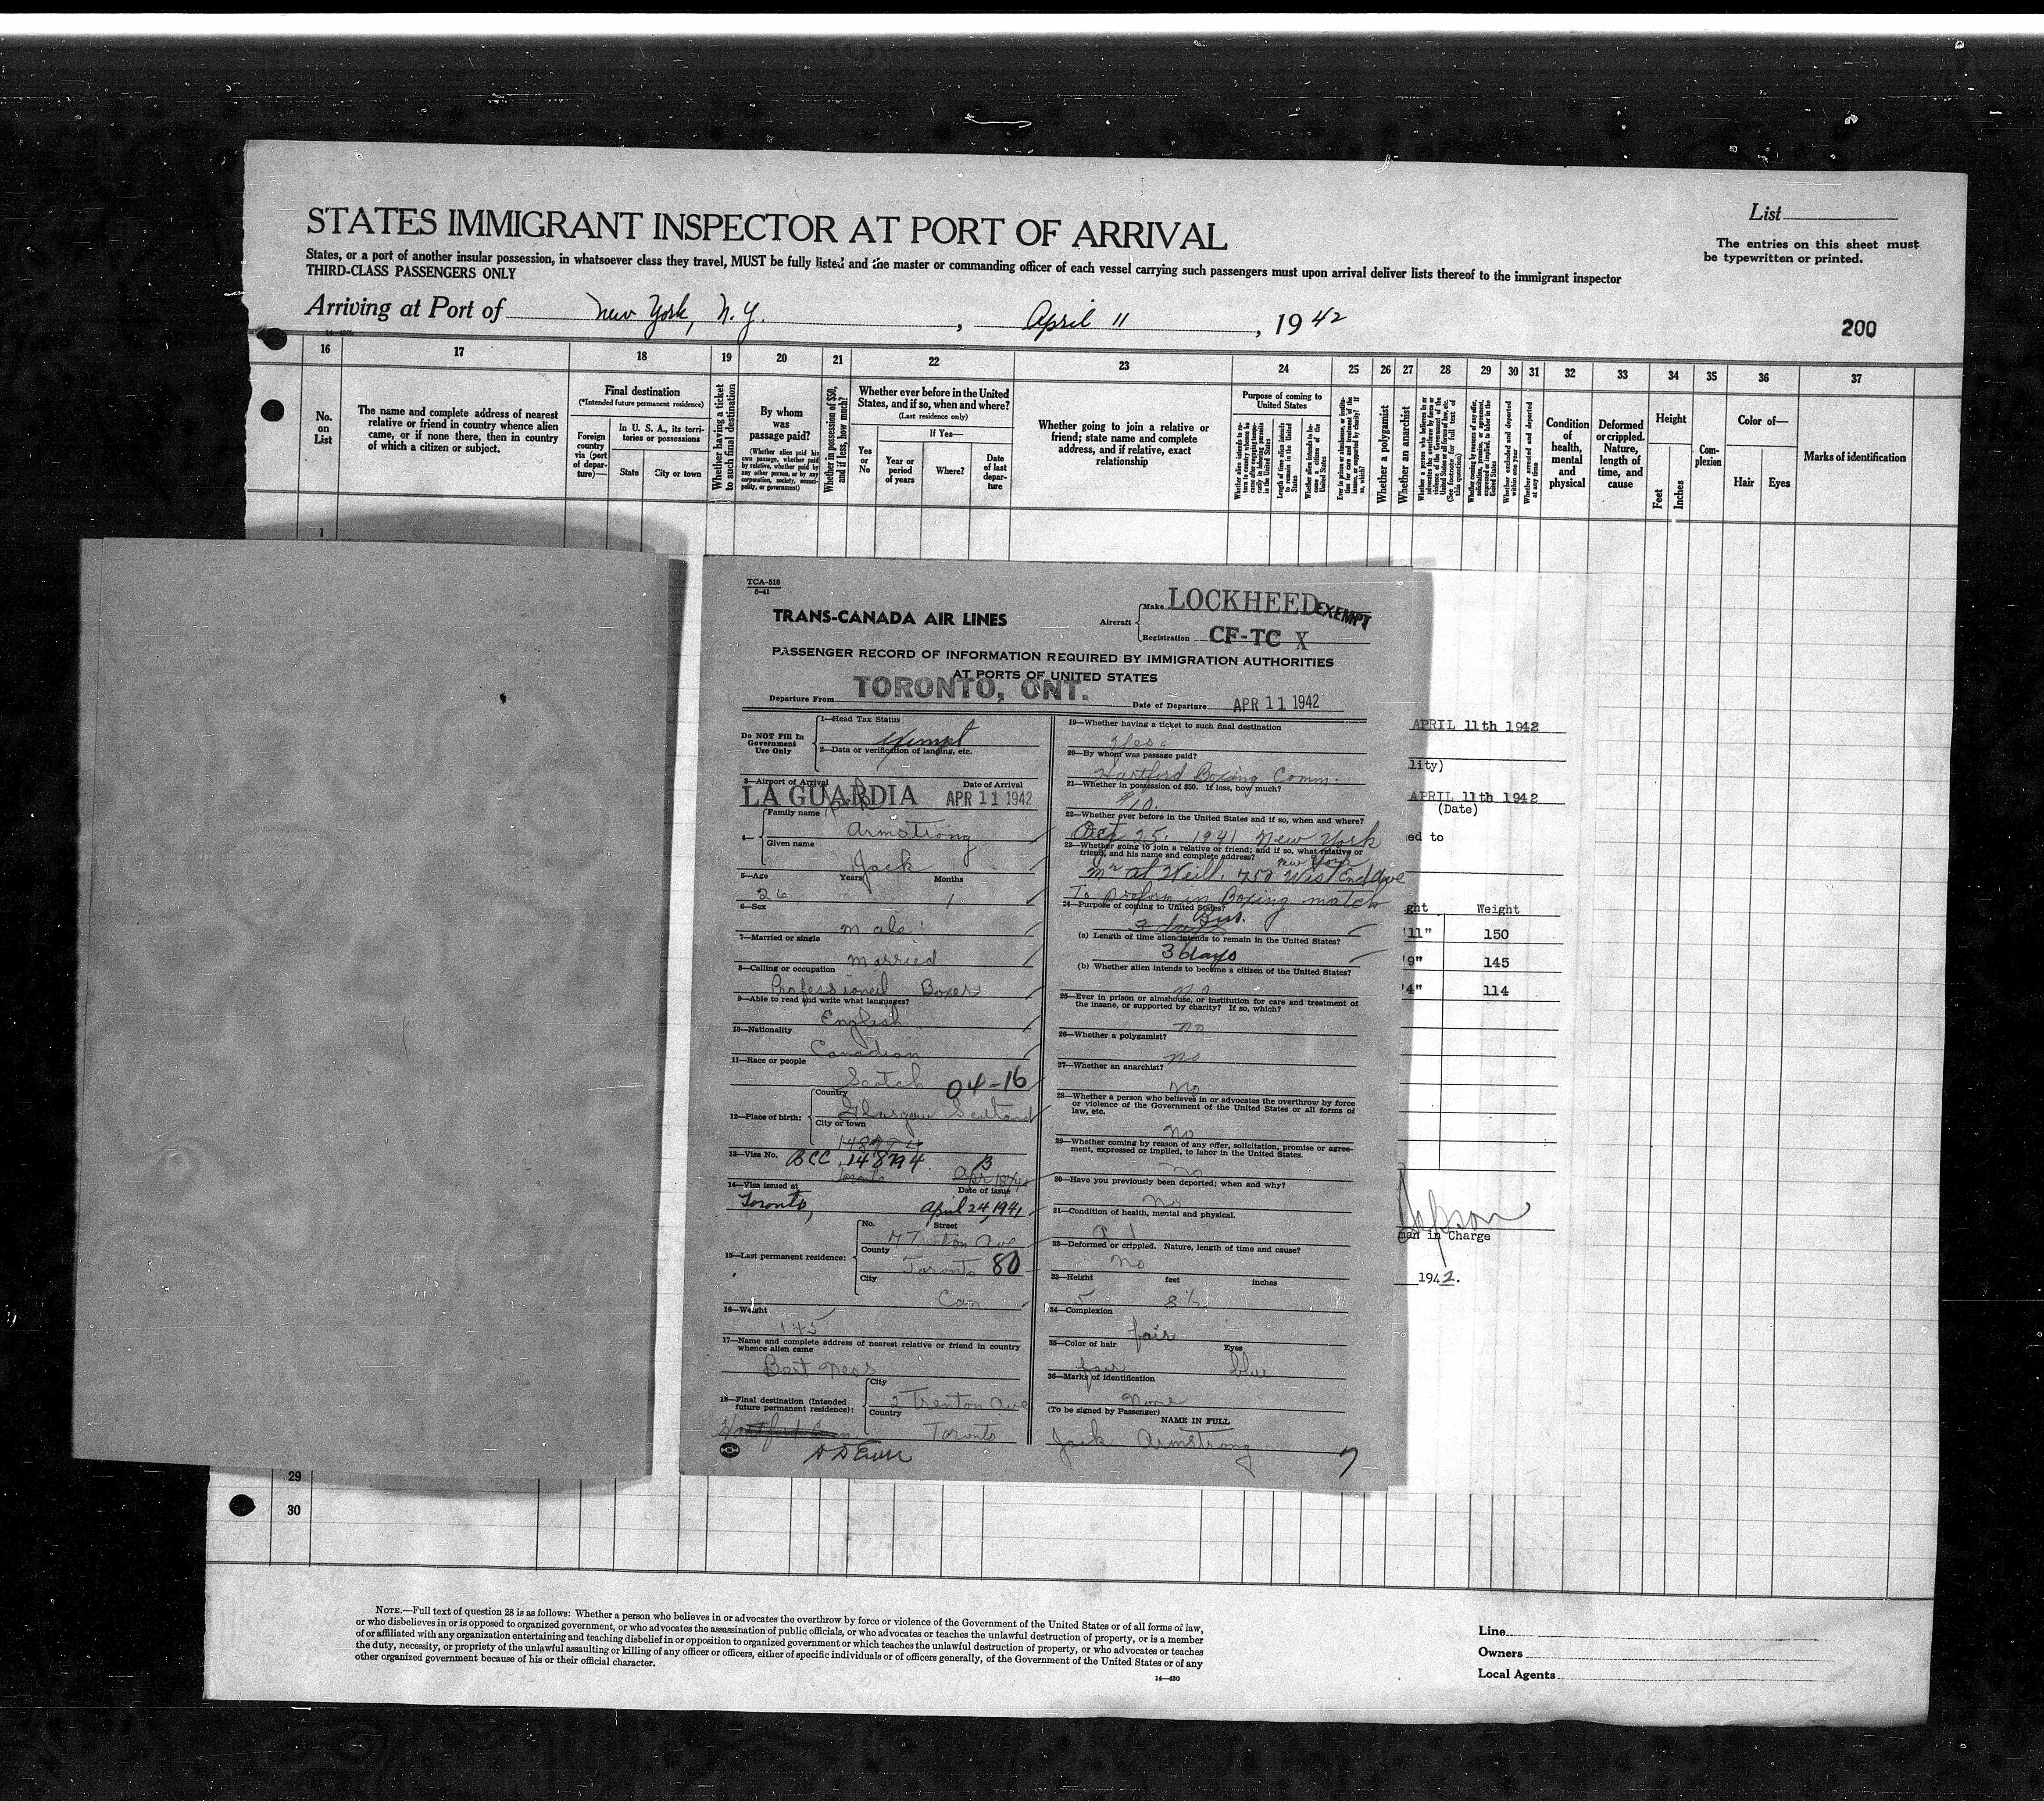 STATES IMMIGRANT INSPECTOR AT PORT OF ARRIVAL
List
The entries on this sheet must
be typewritten or printed.
States, or a port of another insular possession, in whatsoever class they travel, MUST be fully listed and the master or commanding officer of each vessel carrying such passengers must upon arrival deliver lists thereof to the immigrant inspector
THIRD-CLASS PASSENGERS ONLY
Arriving at Port of New York, N.Y. , April 11 , 1942
200
16 17 18 19 20 21 22 23 24 25 26 27 28 29 30 31 32 33 34 35 36 37
No. on List
The name and complete address of nearest relative or friend in country whence alien came, or if none there, then in country of which a citizen or subject.
Final destination
(*Intended future permanent residence)
Foreign country via (port of departure)—
In U. S. A., its territories or possessions
State
City or town
Whether having a ticket to such final destination
By whom was passage paid?
(Whether alien paid his own passage, whether paid by relative, whether paid by any other person, or by any corporation, society, municipality, or government)
Whether in possession of $50, and if less, how much?
Whether ever before in the United States, and if so, when and where?
(Last residence only)
Yes or No
If Yes—
Year or period of years
Where?
Date of last departure
Whether going to join a relative or friend; state name and complete address, and if relative, exact relationship
Purpose of coming to United States
Length of time alien intends to remain in the United States
Whether a polygamist
Whether an anarchist
Condition of health, mental and physical
Deformed or crippled. Nature, length of time, and cause
Height
Feet
Inches
Complexion
Color of—
Hair
Eyes
Marks of identification
1
TCA-518
5-41
TRANS-CANADA AIR LINES
Aircraft
Make LOCKHEED EXEMPT
Registration CF-TC X
PASSENGER RECORD OF INFORMATION REQUIRED BY IMMIGRATION AUTHORITIES
AT PORTS OF UNITED STATES
Departure From TORONTO, ONT. Date of Departure APR 11 1942
Do NOT Fill In Government Use Only
1—Head Tax Status
exempt
2—Data or verification of landing, etc.
3—Airport of Arrival Date of Arrival
LA GUARDIA APR 11 1942
4—
Family name
Armstrong
Given name
Jack
5—Age Years Months
26 1
6—Sex
male
7—Married or single
married
8—Calling or occupation
Professioneil Boxer
9—Able to read and write what languages?
English
10—Nationality
Canadian
11—Race or people
Scotch 04-16
12—Place of birth:
Country
Glasgow Scotland
City or town
13—Visa No. BCC 148794
Toronto
14—Visa issued at Date of issue
Toronto, April 24, 1941
15—Last permanent residence:
No. Street
7 Trenton Ave
County
Toronto 80
City
Can
16—Weight
145
17—Name and complete address of nearest relative or friend in country whence alien came
Bert
18—Final destination (Intended future permanent residence):
City
Trenton Ave
Country
Toronto
19—Whether having a ticket to such final destination
Yes
20—By whom was passage paid?
Hartford Boxing Comm.
21—Whether in possession of $50. If less, how much?
$10.
22—Whether ever before in the United States and if so, when and where?
25. 1941 New York
23—Whether going to join a relative or friend; and if so, what relative or friend, and his name and complete address?
New York
Mr Al Weill. 750 West End Ave
To preform in Boxing match
24—Purpose of coming to United States?
Bus.
3 days
(a) Length of time alien intends to remain in the United States?
3 days
(b) Whether alien intends to become a citizen of the United States?
no
25—Ever in prison or almshouse, or institution for care and treatment of the insane, or supported by charity? If so, which?
no
26—Whether a polygamist?
no
27—Whether an anarchist?
no
28—Whether a person who believes in or advocates the overthrow by force or violence of the Government of the United States or all forms of law, etc.
no
29—Whether coming by reason of any offer, solicitation, promise or agreement, expressed or implied, to labor in the United States.
no
30—Have you previously been deported; when and why?
no
31—Condition of health, mental and physical.
32—Deformed or crippled. Nature, length of time and cause?
no
33—Height feet inches
5 8½
34—Complexion
fair
35—Color of hair Eyes
fair blue
36—Marks of identification
none
(To be signed by Passenger)
NAME IN FULL
Jack Armstrong
7
APRIL 11th 1942
lity)
APRIL 11th 1942
(Date)
ed to
ght Weight
'11" 150
'9" 145
'4" 114
man in Charge
1942.
29
30
NOTE.—Full text of question 28 is as follows: Whether a person who believes in or advocates the overthrow by force or violence of the Government of the United States or of all forms of law,
or who disbelieves in or is opposed to organized government, or who advocates the assassination of public officials, or who advocates or teaches the unlawful destruction of property, or is a member
of or affiliated with any organization entertaining and teaching disbelief in or opposition to organized government or which teaches the unlawful destruction of property, or who advocates or teaches
the duty, necessity, or propriety of the unlawful assaulting or killing of any officer or officers, either of specific individuals or of officers generally, of the Government of the United States or of any
other organized government because of his or their official character.
14—430
Line
Owners
Local Agents